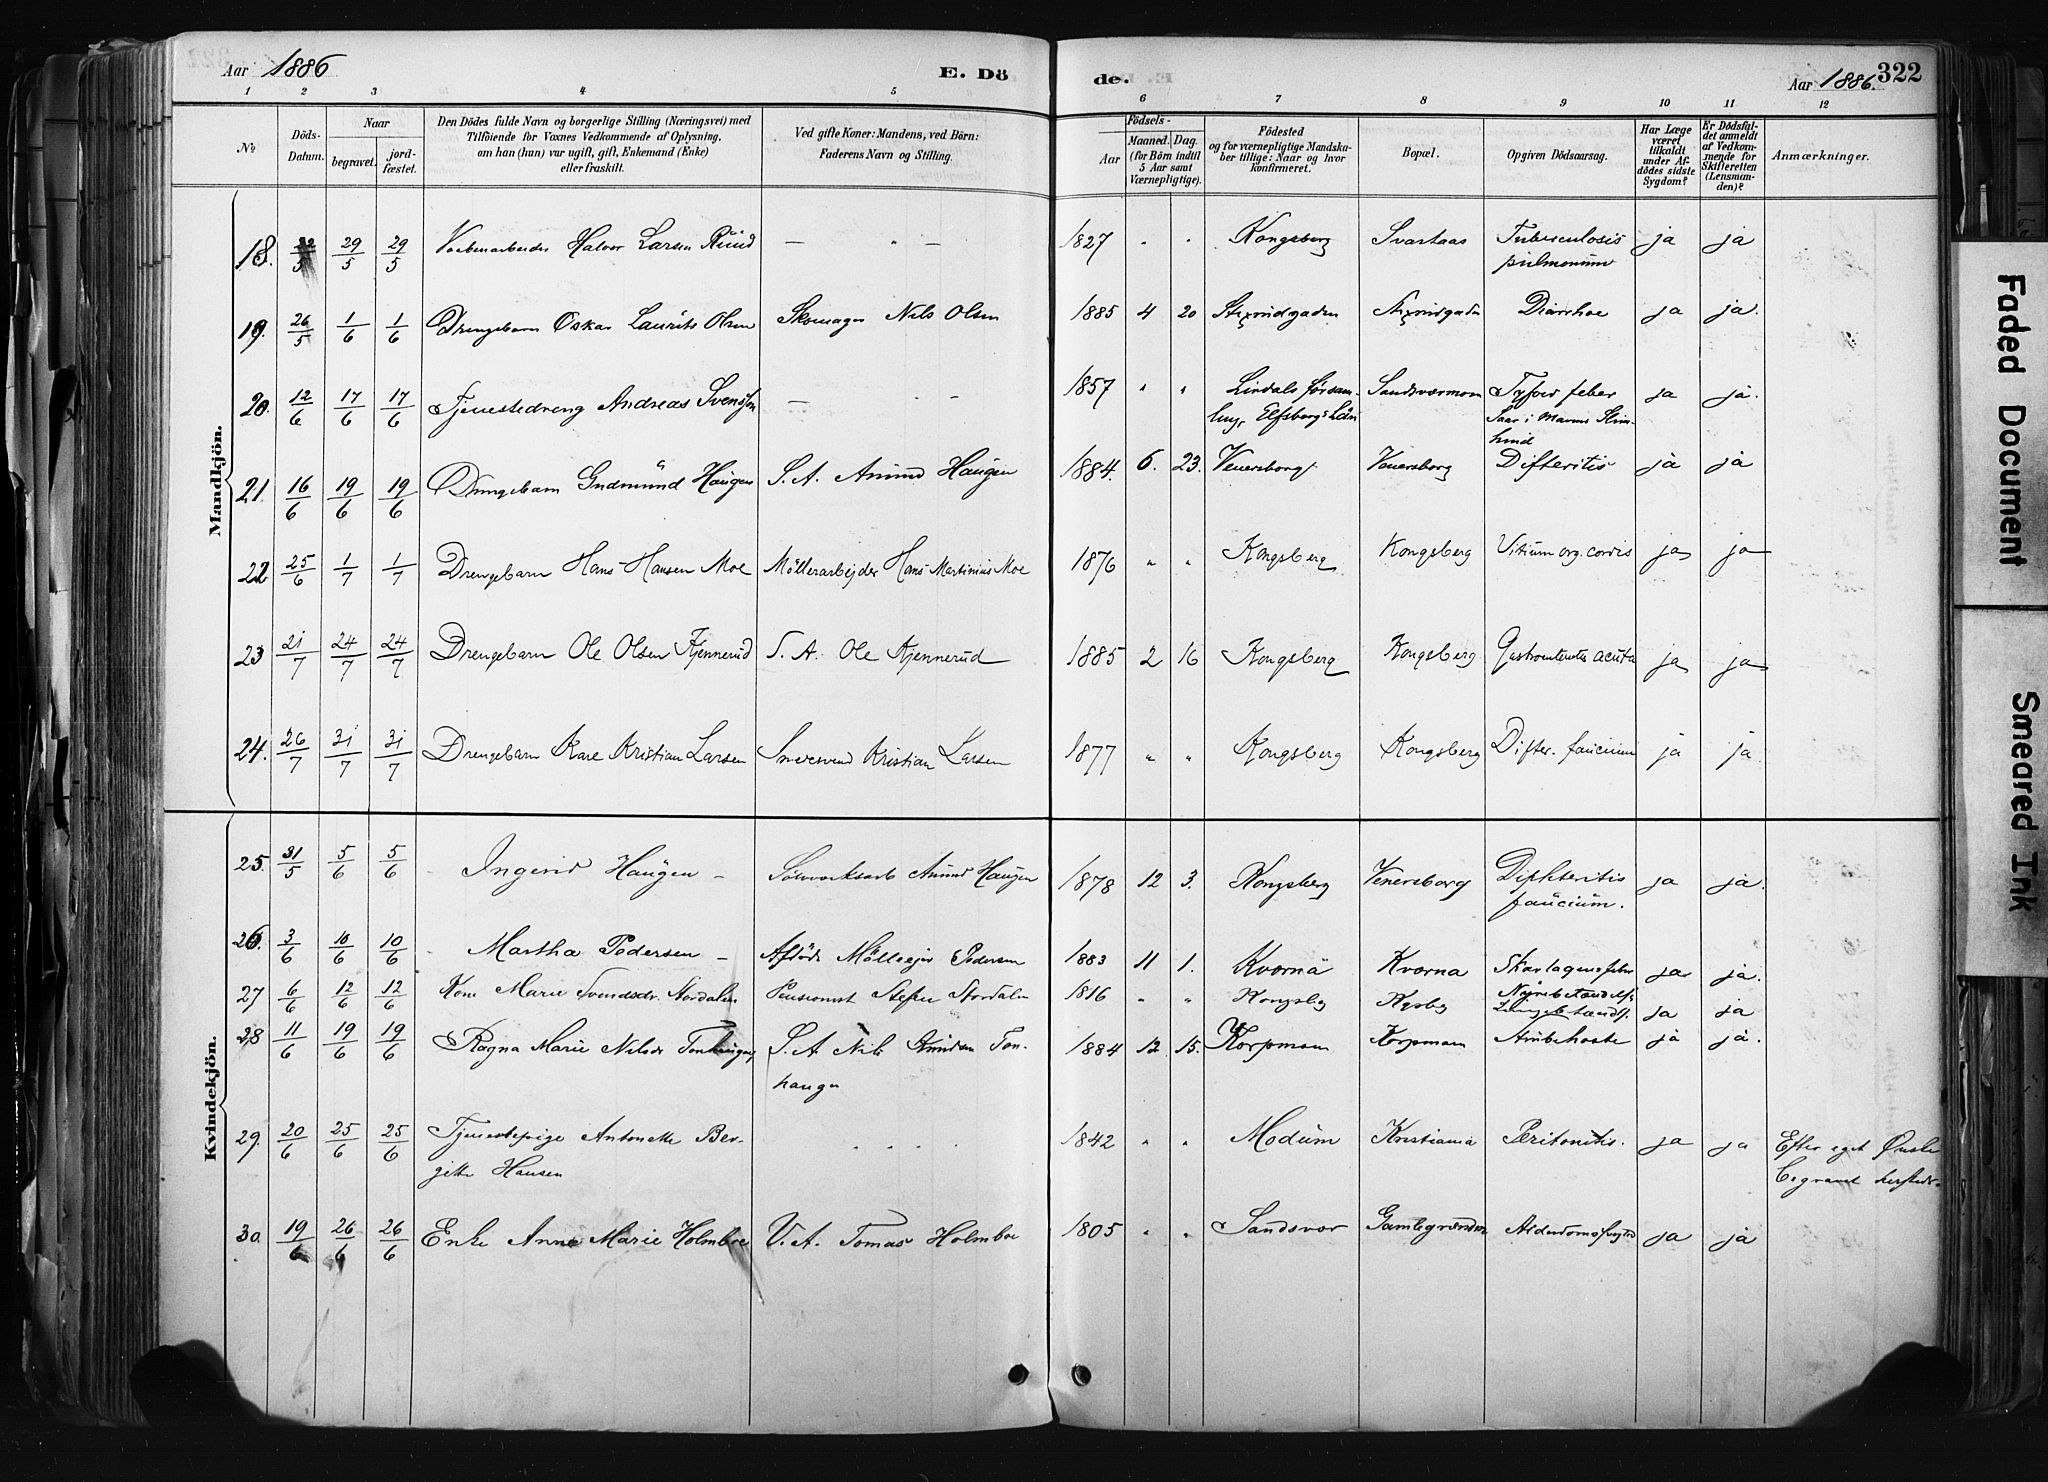 Aar 1886
E. Dö
de.
Aar 1886.
322
1 2 3 4 5 6 7 8 9 10 11 12
No
Döds-
Datum.
Naar
begravet.
jord-
fæstet.
Den Dödes fulde Navn og borgerlige Stilling (Næringsvei) med
Tilföiende for Voxnes Vedkommende af Oplysning,
om han (hun) var ugift, gift, Enkemand (Enke)
eller fraskilt.
Ved gifte Koner: Mandens, ved Börn:
Faderens Navn og Stilling.
Födsels-
Aar
Maaned. Dag.
(for Börn indtil
5 Aar samt
Værnepligtige).
Födested
og for værnepligtige Mandska-
ber tillige: Naar og hvor
konfirmeret.
Bopæl.
Opgiven Dödsaarsag.
Har Læge
været
tilkaldt
under Af-
dödes sidste
Sygdom?
Er Dödsfal-
det anmeldt
af Vedkom-
mende for
Skifteretten
(Lensman-
den)?
Anmærkninger.
Mandkjön.
18. 22/5 29/5 29/5 Halvor Larsen Ruud — " — 1827 " " Kongsberg Svartaas Tuberculosis ja ja
pulmonum
19. 26/5 1/6 1/6 Drengebarn Oskar Laurits Olsen Skomager Nils Olsen 1885 4 20 Diarrhoe ja ja.
20. 12/6 17/6 17/6 Tjenestedreng Andreas Svensson — " — 1857 " " Lindals forsam- Sandsværmoen Tyfoid feber ja ja.
ling, Elfsborgs Län Saar i Mavens Slim-
hind
21. 16/6 19/6 19/6 Drengebarn Gudmund Haugen S. A. Amund Haugen 1884. 6. 23. Venersborg Venersborg Difteritis ja ja
22 25/6 1/7 1/7 Drengebarn Hans Hansen Moe Möllerarbejder Hans Martinius Moe 1876 " " Kongsberg Kongsberg Vitium org. cordis ja ja
23 21/7 24/7 24/7 Drengebarn Ole Olsen Kjennerud S. A. Ole Kjennerud 1885 2 16 Kongsberg Kongsberg Gastroenteritis acuta ja ja
24. 26/7 31/7 31/7 Drengebarn Kare Kristian Larsen Smedesvend Kristian Larsen 1877 " " Kongsberg Kongsberg Difter. faucium ja ja
Kvindekjön.
25. 31/5 5/6 5/6 Ingerid Haugen — Sölvverksarb Amund Haugen 1878 12 3. Kongsberg Venersborg Diphteritis ja ja.
faucium.
26. 3/6 10/6 10/6 Martha Pedersen — Afdöde Mölleejer Pedersen 1883 11 1. Kvornä Kvorna Skarlagensfeber ja ja.
Nyrebetændelse
27 6/6 12/6 12/6 Kone Marie Svendsdr. Stordalen Pensionist Steffen Stordalen 1816 " " Kongsbg Kgsbg Lungebetænds. ja ja
28 11/6 19/6 19/6 Ragna Marie Nilsdr Tonhaugen S. A Nils Amundsen Ton- 1884 12 15. Korpmoen Korpmoen ja ja.
haugen
29. 20/6 25/6 25/6 Tjenestepige Antonette Ber- " " 1842 " " Modum Kristiania Peritonitis. ja ja Efter eget Önske
gitte Hansen begravet herstedr.
30. 19/6 26/6 26/6 Enke Anne Marie Holmboe V. A. Tomas Holmboe 1805 " " Sandsvær Gamlegrænden ja ja
Faded Document
Smeared Ink